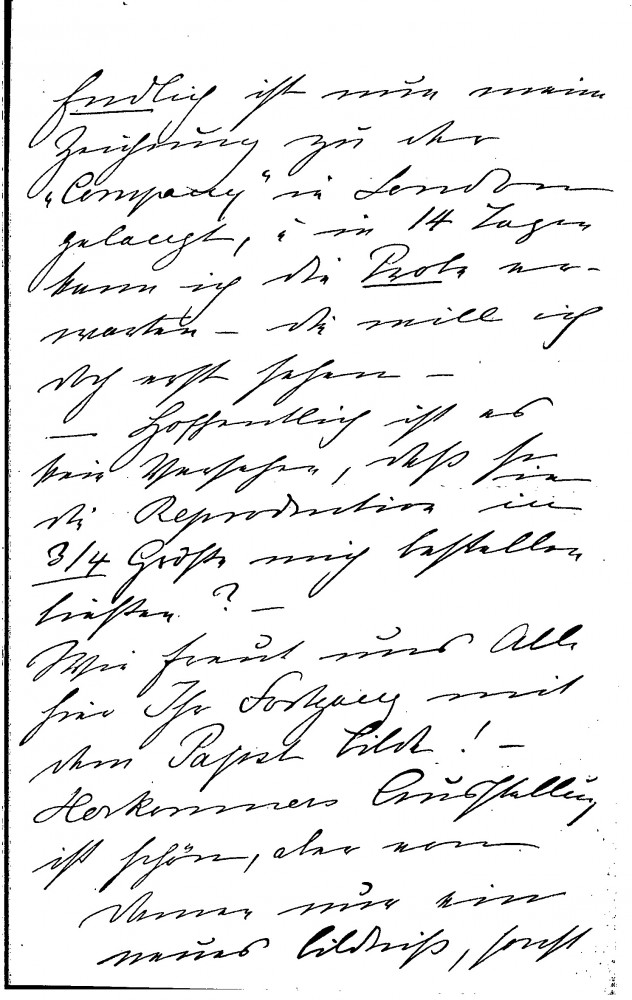 Endlich ist nun meine
Zeichnung zu der
„Company“ in London
gelangt, u in 14 Tagen
kann ich die Probe er-
warten – die will ich
doch erst sehen –
– Hoffentlich ist es
kein Versehen, daß Sie
die Reproduction in
3/4 Größe mich bestellen
ließen? –
Wie freut uns Alle
hier Ihr Fortgang mit
dem Papst bilde! –
Herkommers Ausstellung
ist schön, aber von
Damen nur ein
neues bildniß, sonst